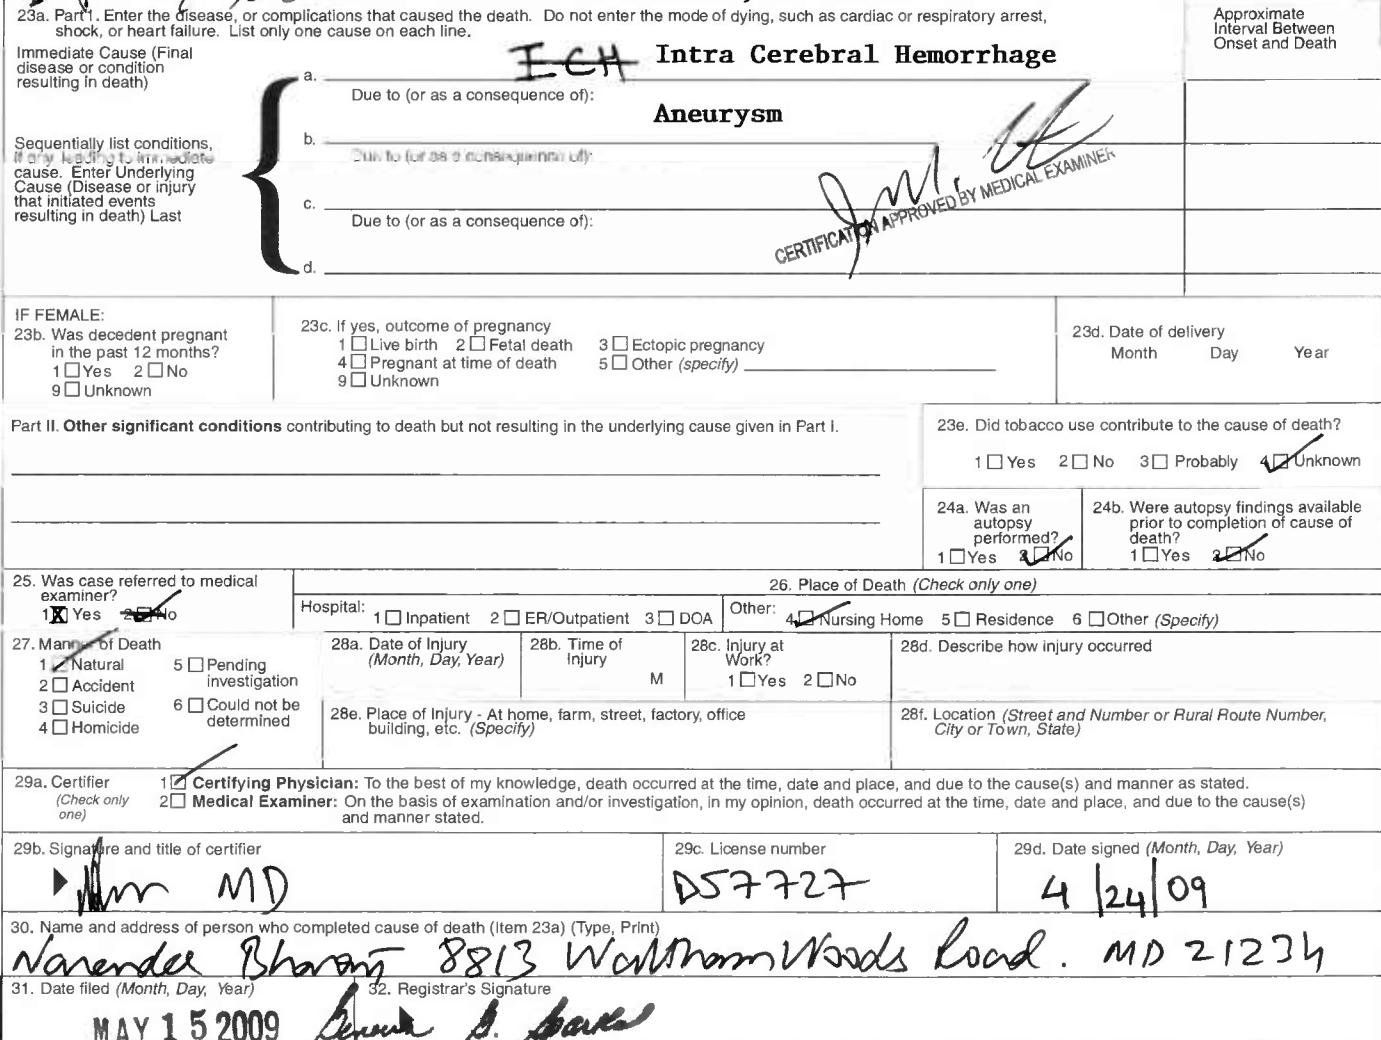 23a. Part I. Enter the disease, or complications that caused the death. Do not enter the mode of dying, such as cardiac or respiratory arrest,
shock, or heart failure. List only one cause on each line.
Approximate
Interval Between
Onset and Death
Immediate Cause (Final
disease or condition
resulting in death)
a. ICH Intra Cerebral Hemorrhage
Due to (or as a consequence of):
Aneurysm
Sequentially list conditions,
if any leading to immediate
cause. Enter Underlying
Cause (Disease or injury
that initiated events
resulting in death) Last
b.
Due to (or as a consequence of):
c.
CERTIFICATION APPROVED BY MEDICAL EXAMINER
Due to (or as a consequence of):
d.
IF FEMALE:
23b. Was decedent pregnant
in the past 12 months?
1 Yes 2 No
9 Unknown
23c. If yes, outcome of pregnancy
1 Live birth 2 Fetal death 3 Ectopic pregnancy
4 Pregnant at time of death 5 Other (specify)
9 Unknown
23d. Date of delivery
Month Day Year
Part II. Other significant conditions contributing to death but not resulting in the underlying cause given in Part I.
23e. Did tobacco use contribute to the cause of death?
1 Yes 2 No 3 Probably 4 Unknown
24a. Was an
autopsy
performed?
1 Yes 2 No
24b. Were autopsy findings available
prior to completion of cause of
death?
1 Yes 2 No
25. Was case referred to medical
examiner?
1 X Yes 2 No
26. Place of Death (Check only one)
Hospital: 1 Inpatient 2 ER/Outpatient 3 DOA
Other: 4 Nursing Home 5 Residence 6 Other (Specify)
27. Manner of Death
1 Natural 5 Pending
investigation
2 Accident
3 Suicide 6 Could not be
determined
4 Homicide
28a. Date of Injury
(Month, Day, Year)
28b. Time of
Injury
M
28c. Injury at
Work?
1 Yes 2 No
28d. Describe how injury occurred
28e. Place of Injury - At home, farm, street, factory, office
building, etc. (Specify)
28f. Location (Street and Number or Rural Route Number,
City or Town, State)
29a. Certifier
(Check only
one)
1 Certifying Physician: To the best of my knowledge, death occurred at the time, date and place, and due to the cause(s) and manner as stated.
2 Medical Examiner: On the basis of examination and/or investigation, in my opinion, death occurred at the time, date and place, and due to the cause(s)
and manner stated.
29b. Signature and title of certifier
MD
29c. License number
D57727
29d. Date signed (Month, Day, Year)
4/24/09
30. Name and address of person who completed cause of death (Item 23a) (Type, Print)
8813 Waltham Woods Road. MD 21234
31. Date filed (Month, Day, Year)
MAY 15 2009
32. Registrar's Signature